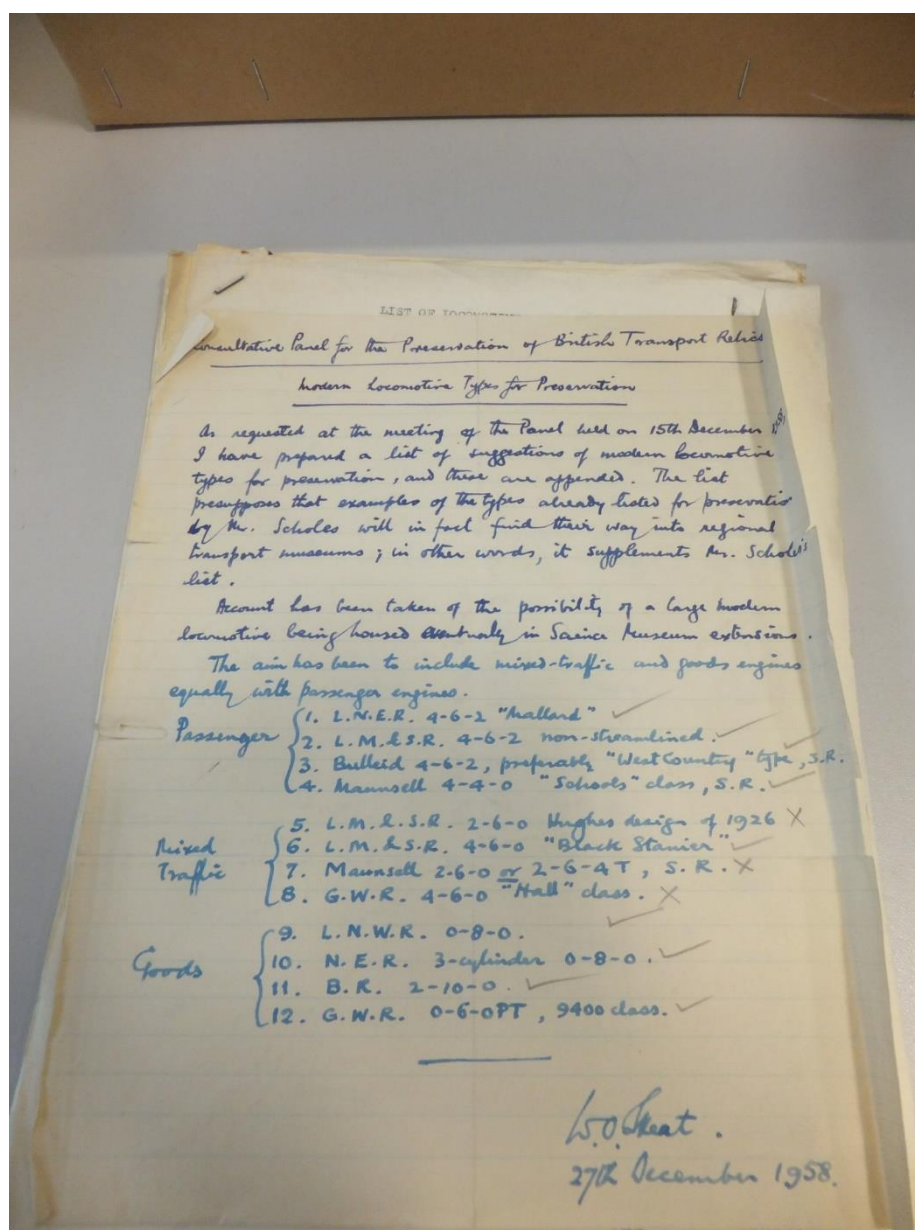 LIST OF LOCOMOTIVE
Consultative Panel for the Preservation of British Transport Relics
Modern Locomotive Types for Preservation
As requested at the meeting of the Panel held on 15th December 1958,
I have prepared a list of suggestions of modern locomotive
types for preservation, and these are appended. The list
presupposes that examples of the types already listed for preservatio
by Mr. Scholes will in fact find their way into regional
transport museums; in other words, it supplements Mr. Scholes's
list.
Account has been taken of the possibility of a large modern
locomotive being housed eventually in Science Museum extensions.
The aim has been to include mixed-traffic and goods engines
equally with passenger engines.
Passenger
1. L.N.E.R. 4-6-2 "Mallard" ✓
2. L.M.&S.R. 4-6-2 non-streamlined. ✓
3. Bulleid 4-6-2, preferably "West Country" type, S.R. ✓
4. Maunsell 4-4-0 "Schools" class, S.R. ✓
Mixed Traffic
5. L.M.&S.R. 2-6-0 Hughes design of 1926 X
6. L.M.&S.R. 4-6-0 "Black Stanier" ✓
7. Maunsell 2-6-0 or 2-6-4T, S.R. X
8. G.W.R. 4-6-0 "Hall" class. X
Goods
9. L.N.W.R. 0-8-0. ✓
10. N.E.R. 3-cylinder 0-8-0. ✓
11. B.R. 2-10-0. ✓
12. G.W.R. 0-6-0PT, 9400 class. ✓
W.O. Skeat.
27th December 1958.